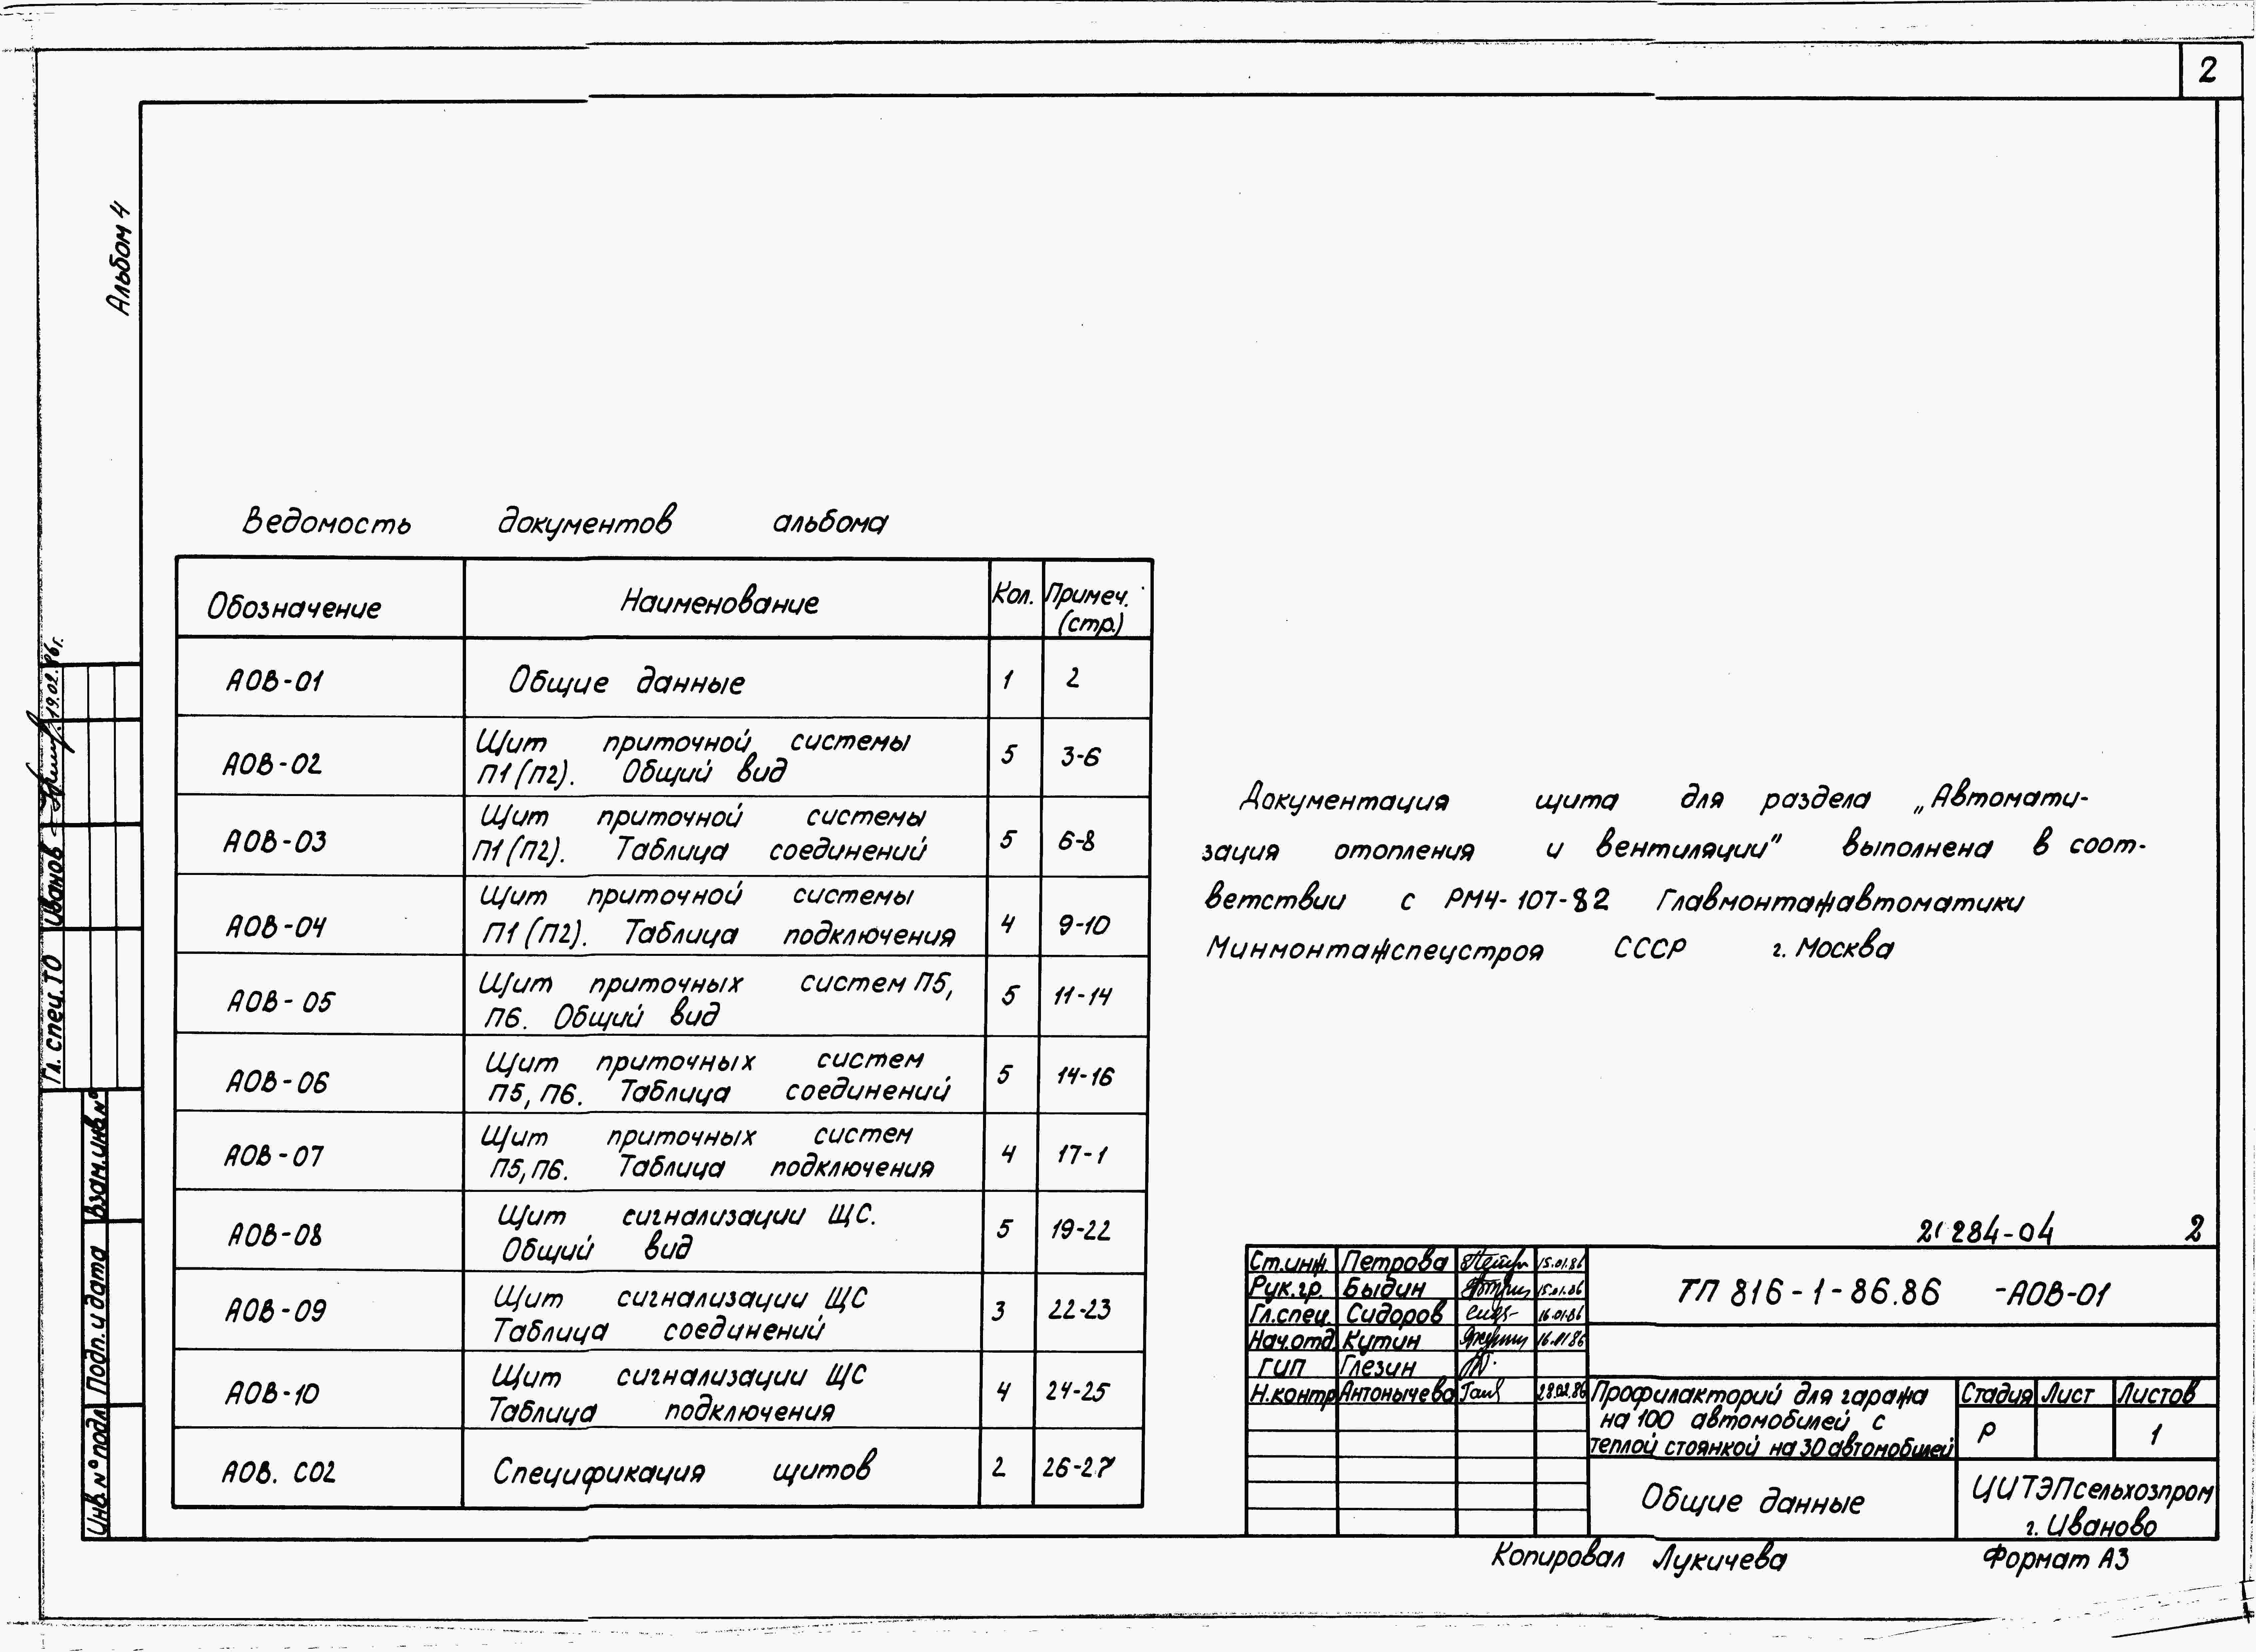 2
Альбом 4
Ведомость документов альбома
Обозначение Наименование Кол. Примеч. (стр.)
АОВ-01 Общие данные 1 2
АОВ-02 Щит приточной системы П1(П2). Общий вид 5 3-6
АОВ-03 Щит приточной системы П1(П2). Таблица соединений 5 6-8
АОВ-04 Щит приточной системы П1(П2). Таблица подключения 4 9-10
АОВ-05 Щит приточных систем П5, П6. Общий вид 5 11-14
АОВ-06 Щит приточных систем П5, П6. Таблица соединений 5 14-16
АОВ-07 Щит приточных систем П5, П6. Таблица подключения 4 17-1
АОВ-08 Щит сигнализации ЩС. Общий вид 5 19-22
АОВ-09 Щит сигнализации ЩС Таблица соединений 3 22-23
АОВ-10 Щит сигнализации ЩС Таблица подключения 4 24-25
АОВ. С02 Спецификация щитов 2 26-27
Документация щита для раздела „Автомати-
зация отопления и вентиляции" выполнена в соот-
ветствии с РМ4-107-82 Главмонтажавтоматики
Минмонтажспецстроя СССР г. Москва
21284-04 2
Ст.инж. Петрова 15.01.86
Рук.гр. Быдин 15.01.86
Гл.спец. Сидоров 16.01.86
Нач.отд. Кутин 16.01.86
ГИП Глезин
Н.контр Антонычева 28.02.86
ТП 816-1-86.86 -АОВ-01
Профилакторий для гаража
на 100 автомобилей с
теплой стоянкой на 30 автомобилей
Стадия Лист Листов
Р 1
Общие данные
ЦИТЭПсельхозпром
г. Иваново
Копировал Лукичева Формат А3
Гл. спец. ТО Иванов 19.02.86г.
Взам.инв.№
Подп. и дата
Инв. № подл